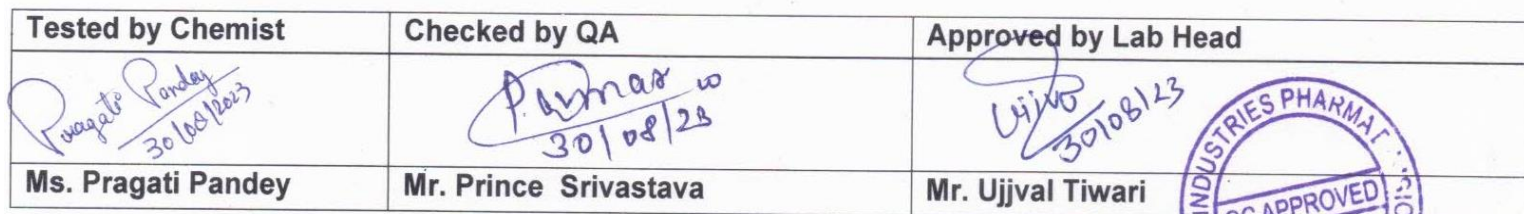 Tested by Chemist Checked by QA Approved by Lab Head
Pragati Pandey
30/08/2023
30/08/23
Ujjval
30/08/23
Ms. Pragati Pandey Mr. Prince Srivastava Mr. Ujjval Tiwari
INDUSTRIES PHARMA
APPROVED